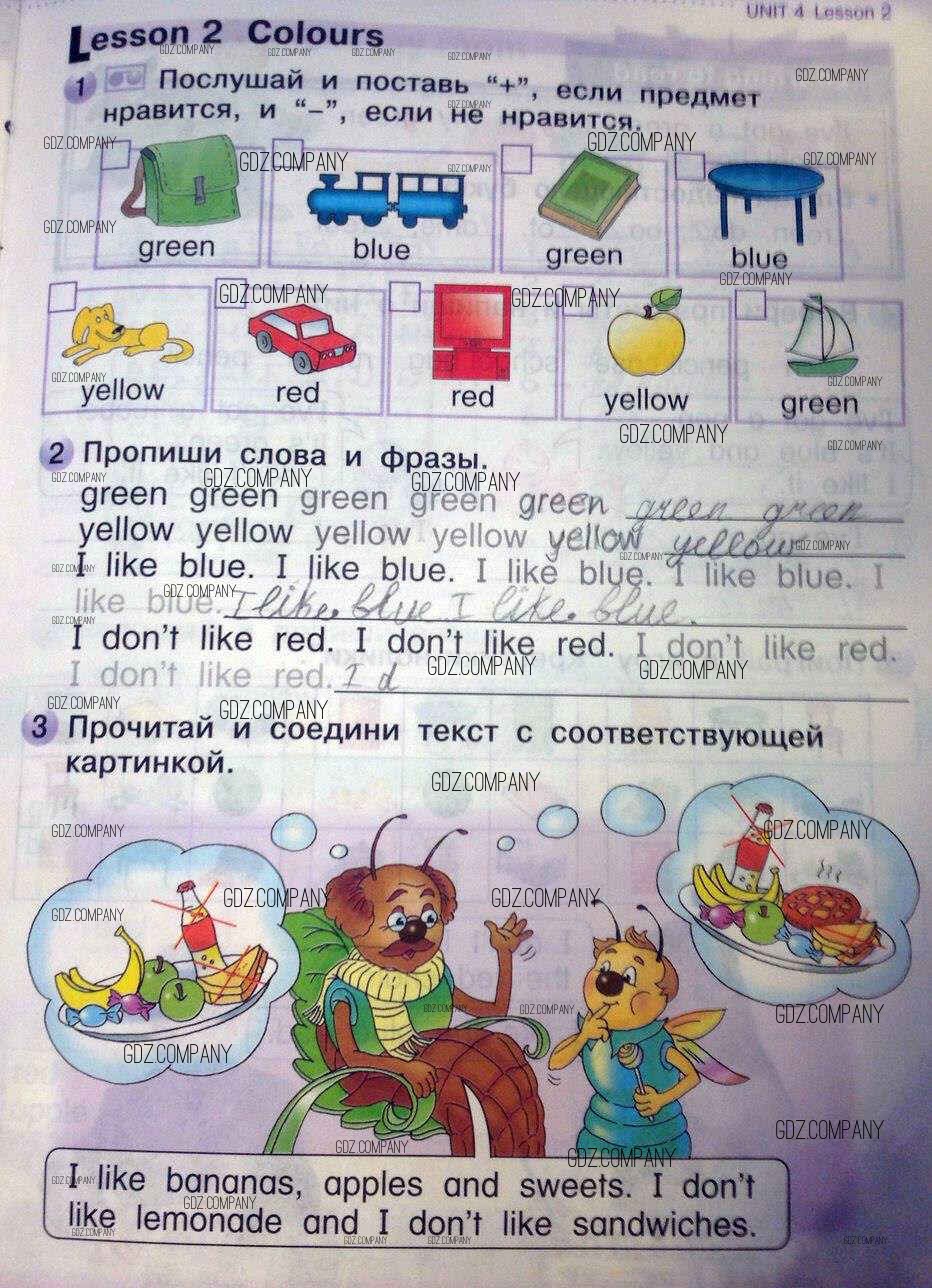 UNIT 4 Lesson 2
Lesson 2 Colours
1 Послушай и поставь “+”, если предмет
нравится, и “–”, если не нравится.
green
blue
green
blue
yellow
red
red
yellow
green
2 Пропиши слова и фразы.
green green green green green green green
yellow yellow yellow yellow yellow yellow
I like blue. I like blue. I like blue. I like blue. I
like blue. I like blue I like blue.
I don’t like red. I don’t like red. I don’t like red.
I don’t like red. I d
3 Прочитай и соедини текст с соответствующей
картинкой.
I like bananas, apples and sweets. I don’t
like lemonade and I don’t like sandwiches.
GDZ.COMPANY